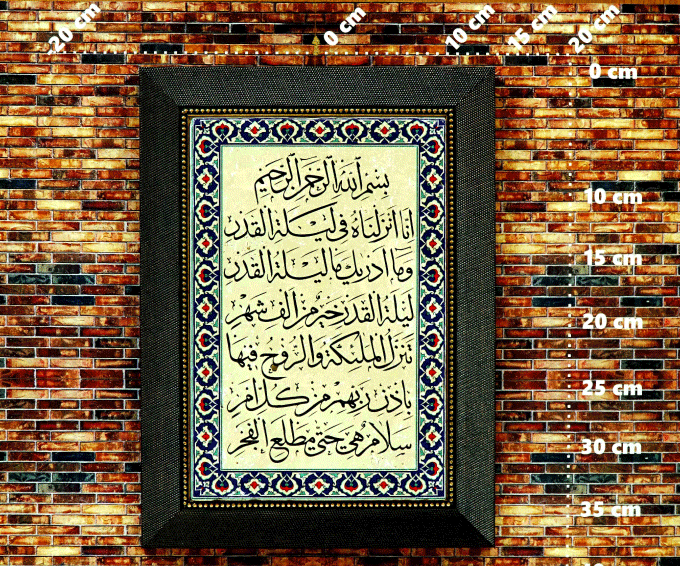 20 cm
0 cm
10 cm
15 cm
20 cm
0 cm
10 cm
15 cm
20 cm
25 cm
30 cm
35 cm
بسم الله الرحمن الرحيم
انا انزلناه في ليلة القدر
وما ادريك ما ليلة القدر
ليلة القدر خير من الف شهر
تنزل الملئكة والروح فيها
باذن ربهم من كل امر
سلام هي حتى مطلع الفجر